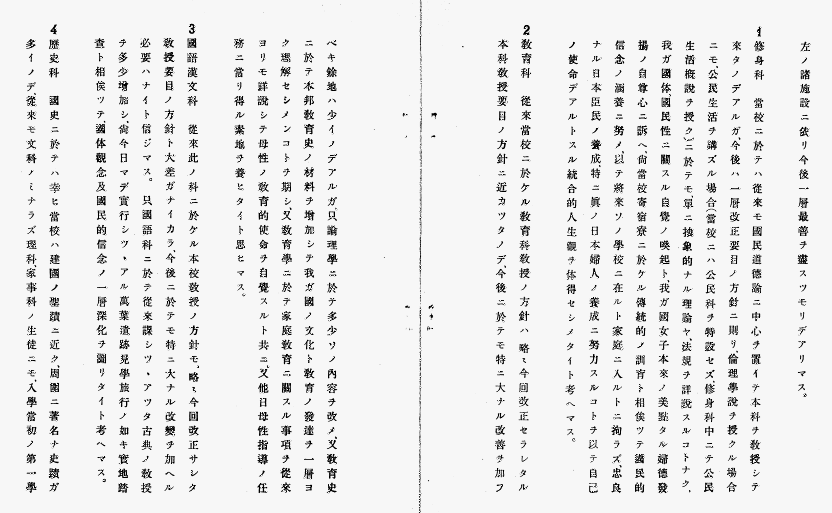 左ノ諸施設ニ依リ今後一層最善ヲ盡スツモリデアリマス。
1
修身科 當校ニ於テハ從來モ國民道德論ニ中心ヲ置イテ本科ヲ教授シテ
來タノデアルガ、今後ハ一層改正要目ノ方針ニ則リ、倫理學說ヲ授クル場合
ニモ、公民生活ヲ講ズル場合(當校ニハ公民科ヲ特設セズ、修身科中ニテ公民
生活槪說ヲ授ク)ニ於テモ單ニ抽象的ナル理論ヤ、法規ヲ詳說スルコトナク、
我ガ國體、國民性ニ關スル自覺ノ喚起ト、我ガ國女子本來ノ美點タル婦德發
揚ノ自尊心ニ訴ヘ、尙當校寄宿寮ニ於ケル傳統的ノ訓育ト相俟ツテ國民的
信念ノ涵養ニ努メ、以テ將來ソノ學校ニ在ルト家庭ニ入ルトニ拘ラズ、忠良
ナル日本臣民ノ養成、特ニ眞ノ日本婦人ノ養成ニ努力スルコトヲ以テ自己
ノ使命デアルトスル統合的人生觀ヲ体得セシメタイト考ヘマス。
2
教育科 從來當校ニ於ケル教育科教授ノ方針ハ略〻今回改正セラレタル
本科教授要目ノ方針ニ近カツタノデ、今後ニ於テモ特ニ大ナル改善ヲ加フ
ベキ餘地ハ少イノデアルガ、只論理學ニ於テ多少ソノ內容ヲ改メ、又教育史
ニ於テ本邦教育史ノ材料ヲ增加シテ我ガ國ノ文化ト教育ノ發達ヲ一層ヨ
ク理解セシメンコトヲ期シ、又教育學ニ於テ家庭教育ニ關スル事項ヲ從來
ヨリモ詳說シテ母性ノ教育的使命ヲ自覺スルト共ニ、又他日母性指導ノ任
務ニ當リ得ル素地ヲ養ヒタイト思ヒマス。
3
國語漢文科 從來此ノ科ニ於ケル本校教授ノ方針モ、略〻今回改正サレタ
教授要目ノ方針ト大差ガナイカラ、今後ニ於テモ特ニ大ナル改變ヲ加ヘル
必要ハナイト信ジマス。只國語科ニ於テ從來課シツヽアツタ古典ノ教授
ヲ多少增加シ、尙今日マデ實行シツヽアル萬葉遺跡見學旅行ノ如キ實地踏
査ト相俟ツテ、國体觀念及國民的信念ノ一層深化ヲ圖リタイト考ヘマス。
4
歷史科 國史ニ於テハ幸ヒ當校ハ建國ノ聖蹟ニ近ク、周圍ニ著名ナ史蹟ガ
多イノデ、從來モ文科ノミナラズ理科、家事科ノ生徒ニモ、入學當初ノ第一學